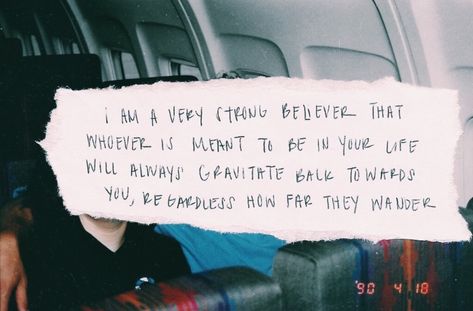 I AM A VERY STRONG BELIEVER THAT
WHOEVER IS MEANT TO BE IN YOUR LIFE
WILL ALWAYS GRAVITATE BACK TOWARDS
YOU, REGARDLESS HOW FAR THEY WANDER
90 4 18